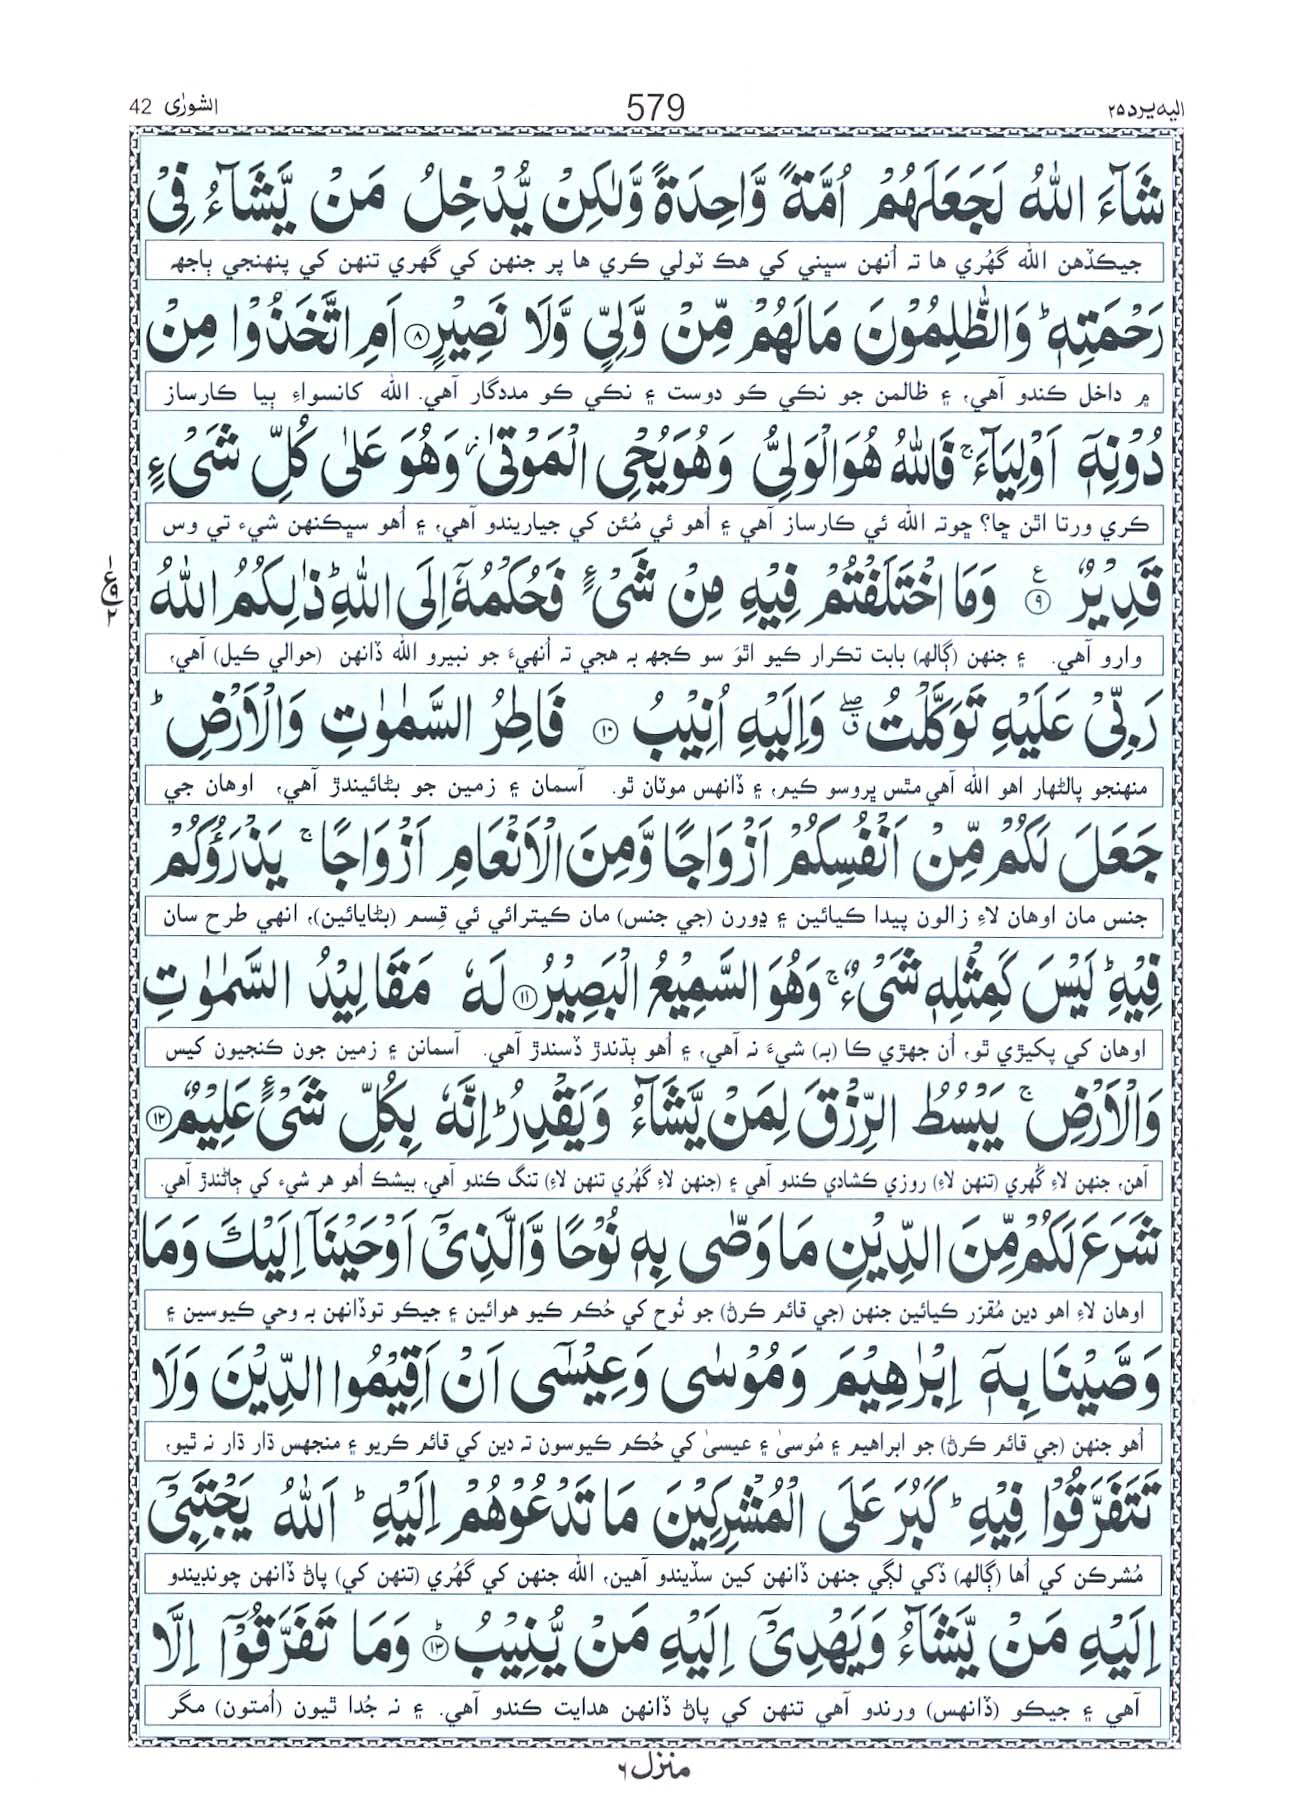 اليه يرد ٢٥ 579 الشورٰى 42
شَآءَ اللّٰهُ لَجَعَلَهُمْ اُمَّةً وَّاحِدَةً وَّلٰكِنْ يُّدْخِلُ مَنْ يَّشَآءُ فِىْ
جيڪڏهن الله گهُري ها تہ اُنهن سڀني کي هڪ ٽولي ڪري ها پر جنهن کي گهري تنهن کي پنهنجي ٻاجهہ
رَحْمَتِهٖ ؕ وَالظّٰلِمُوْنَ مَا لَهُمْ مِّنْ وَّلِىٍّ وَّلَا نَصِيْرٍ ﴿٨﴾ اَمِ اتَّخَذُوْا مِنْ
۾ داخل ڪندو آهي، ۽ ظالمن جو نڪي ڪو دوست ۽ نڪي ڪو مددگار آهي. الله کانسواءِ ٻيا ڪارساز
دُوْنِهٖٓ اَوْلِيَآءَ ۚ فَاللّٰهُ هُوَ الْوَلِىُّ وَهُوَ يُحْىِ الْمَوْتٰى ؗ وَهُوَ عَلٰى كُلِّ شَىْءٍ
ڪري ورتا اٿن ڇا؟ ڇوتہ الله ئي ڪارساز آهي ۽ اُهو ئي مُئن کي جياريندو آهي، ۽ اُهو سڀڪنهن شيء تي وس
قَدِيْرٌ ﴿٩﴾ ع وَمَا اخْتَلَفْتُمْ فِيْهِ مِنْ شَىْءٍ فَحُكْمُهٗٓ اِلَى اللّٰهِ ؕ ذٰلِكُمُ اللّٰهُ
وارو آهي. ۽ جنهن (ڳالهہ) بابت تڪرار ڪيو اٿوَ سو ڪجهہ بہ هجي تہ اُنهيءَ جو نبيرو الله ڏانهن (حوالي ڪيل) آهي،
رَبِّىْ عَلَيْهِ تَوَكَّلْتُ ۖ وَاِلَيْهِ اُنِيْبُ ﴿١٠﴾ فَاطِرُ السَّمٰوٰتِ وَالْاَرْضِ ؕ
منهنجو پالڻهار اهو الله آهي مٿس ڀروسو ڪيم، ۽ ڏانهس موٽان ٿو. آسمان ۽ زمين جو بڻائيندڙ آهي، اوهان جي
جَعَلَ لَكُمْ مِّنْ اَنْفُسِكُمْ اَزْوَاجًا وَّمِنَ الْاَنْعَامِ اَزْوَاجًا ۚ يَذْرَؤُكُمْ
جنس مان اوهان لاءِ زالون پيدا ڪيائين ۽ ڍورن (جي جنس) مان ڪيترائي ئي قِسم (بڻايائين)، انهي طرح سان
فِيْهِ ؕ لَيْسَ كَمِثْلِهٖ شَىْءٌ ۚ وَهُوَ السَّمِيْعُ الْبَصِيْرُ ﴿١١﴾ لَهٗ مَقَالِيْدُ السَّمٰوٰتِ
اوهان کي پکيڙي ٿو، اُن جهڙي ڪا (بہ) شيءَ نہ آهي، ۽ اُهو ٻڌندڙ ڏسندڙ آهي. آسمانن ۽ زمين جون ڪنجيون کيس
وَالْاَرْضِ ۚ يَبْسُطُ الرِّزْقَ لِمَنْ يَّشَآءُ وَيَقْدِرُ ؕ اِنَّهٗ بِكُلِّ شَىْءٍ عَلِيْمٌ ﴿١٢﴾
آهن، جنهن لاءِ گُهري (تنهن لاءِ) روزي ڪشادي ڪندو آهي ۽ (جنهن لاءِ گهُري تنهن لاءِ) تنگ ڪندو آهي، بيشڪ اُهو هر شيء کي ڄاڻندڙ آهي.
شَرَعَ لَكُمْ مِّنَ الدِّيْنِ مَا وَصّٰى بِهٖ نُوْحًا وَّالَّذِىْٓ اَوْحَيْنَآ اِلَيْكَ وَمَا
اوهان لاءِ اهو دين مُقرّر ڪيائين جنهن (جي قائم ڪرڻ) جو نُوح کي حُڪم ڪيو هوائين ۽ جيڪو توڏانهن بہ وحي ڪيوسين ۽
وَصَّيْنَا بِهٖٓ اِبْرٰهِيْمَ وَمُوْسٰى وَعِيْسٰٓى اَنْ اَقِيْمُوا الدِّيْنَ وَلَا
اُهو جنهن (جي قائم ڪرڻ) جو ابراهيم ۽ مُوسىٰ ۽ عيسىٰ کي حُڪم ڪيوسون تہ دين کي قائم ڪريو ۽ منجهس ڌار ڌار نہ ٿيو،
تَتَفَرَّقُوْا فِيْهِ ؕ كَبُرَ عَلَى الْمُشْرِكِيْنَ مَا تَدْعُوْهُمْ اِلَيْهِ ؕ اَللّٰهُ يَجْتَبِىْٓ
مُشرڪن کي اُها (ڳالهہ) ڏکي لڳي جنهن ڏانهن کين سڏيندو آهين، الله جنهن کي گهُري (تنهن کي) پاڻ ڏانهن چونڊيندو
اِلَيْهِ مَنْ يَّشَآءُ وَيَهْدِىْٓ اِلَيْهِ مَنْ يُّنِيْبُ ؕ﴿١٣﴾ وَمَا تَفَرَّقُوْٓا اِلَّا
آهي ۽ جيڪو (ڏانهس) ورندو آهي تنهن کي پاڻ ڏانهن هدايت ڪندو آهي. ۽ نہ جُدا ٿيون (اُمتون) مگر
منزل ٦